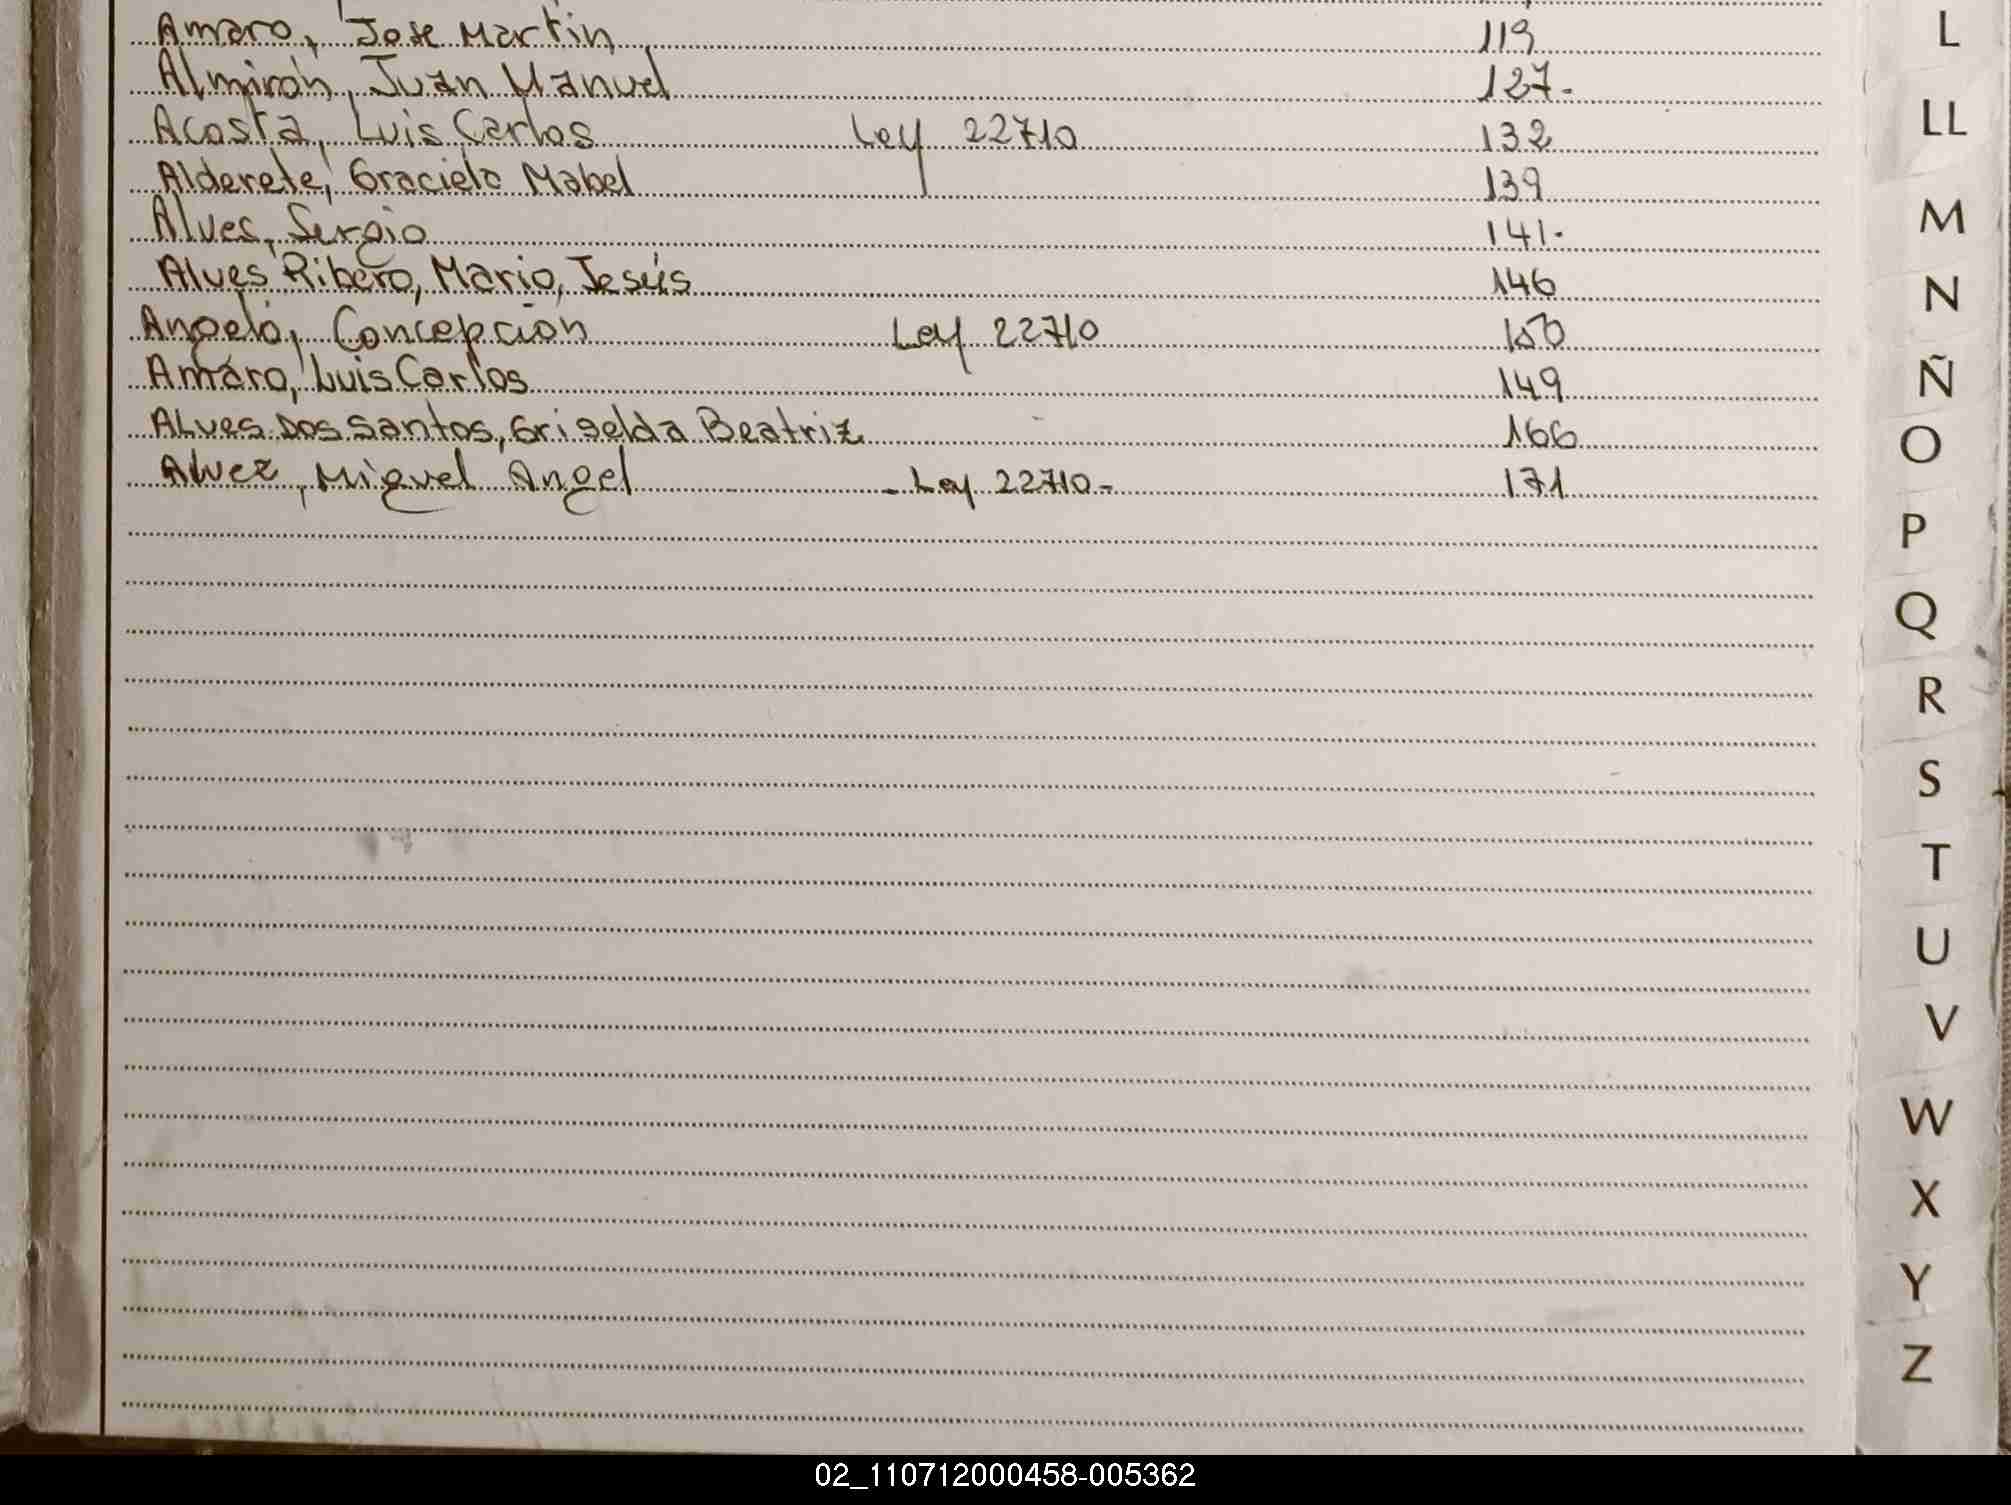 Amaro, Jose Martin 119
Almirón, Juan Manuel 127-
Acosta, Luis Carlos Ley 22710 132
Alderete, Graciela Mabel 139
Alves, Sergio 141-
Alves Ribero, Mario, Jesús 146
Angeló, Concepción Ley 22710 150
Amaro, Luis Carlos 149
ALves Dos Santos, Griselda Beatriz 166
Alvez, Miguel Angel - Ley 22710- 171
L
LL
M
N
Ñ
O
P
Q
R
S
T
U
V
W
X
Y
Z
02_110712000458-005362